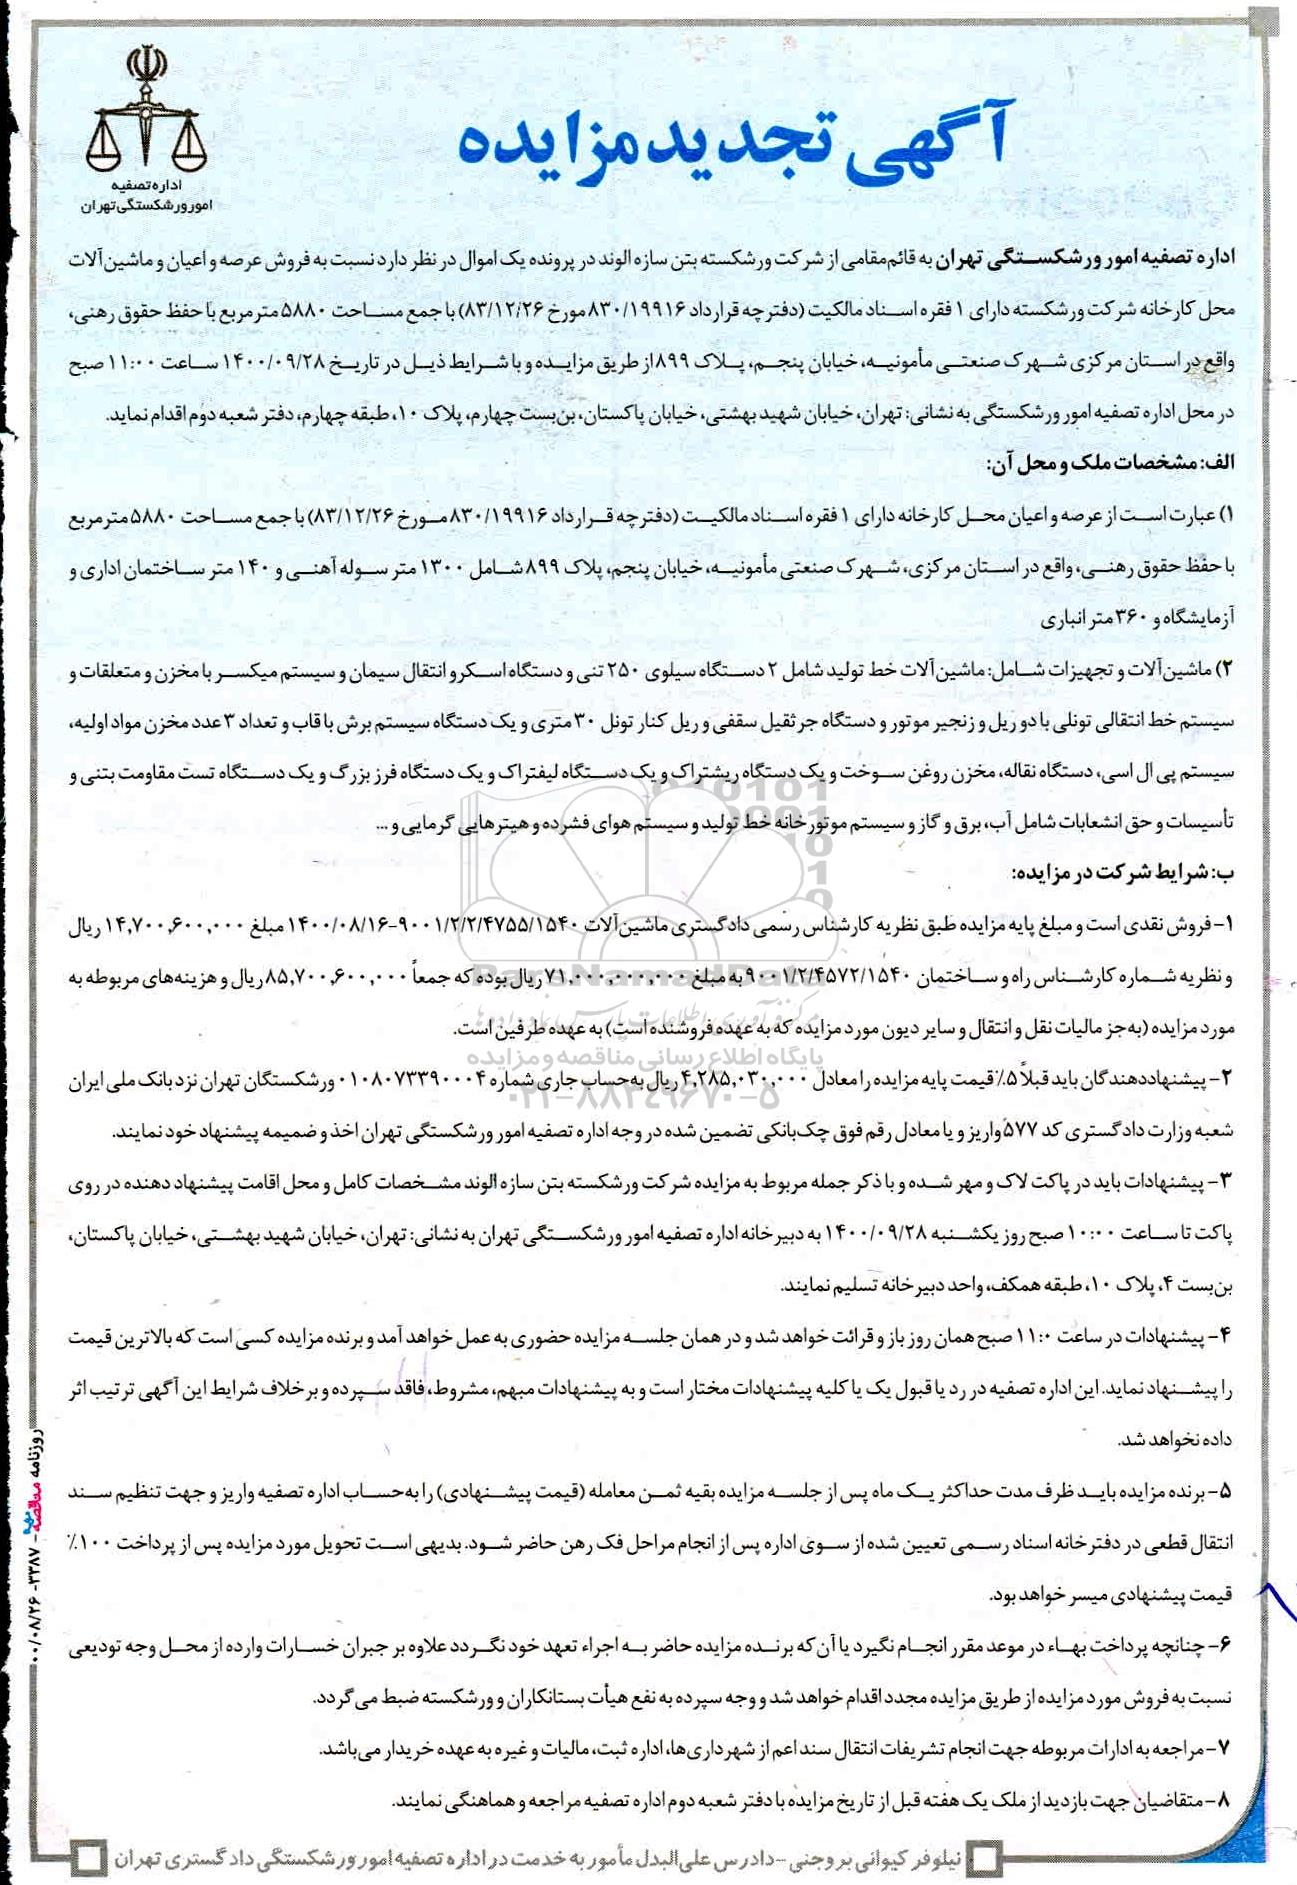 اداره تصفیه
امور ورشکستگی تهران
آگهی تجدید مزایده
اداره تصفیه امور ورشکستگی تهران به قائم‌مقامی از شرکت ورشکسته بتن سازه الوند در پرونده یک اموال در نظر دارد نسبت به فروش عرصه و اعیان و ماشین‌آلات
محل کارخانه شرکت ورشکسته دارای ۱ فقره اسناد مالکیت (دفترچه قرارداد ۸۳۰/۱۹۹۱۶ مورخ ۸۳/۱۲/۲۶) با جمع مساحت ۵۸۸۰ مترمربع با حفظ حقوق رهنی،
واقع در استان مرکزی شهرک صنعتی مأمونیه، خیابان پنجم، پلاک ۸۹۹ از طریق مزایده و با شرایط ذیل در تاریخ ۱۴۰۰/۰۹/۲۸ ساعت ۱۱:۰۰ صبح
در محل اداره تصفیه امور ورشکستگی به نشانی: تهران، خیابان شهید بهشتی، خیابان پاکستان، بن‌بست چهارم، پلاک ۱۰، طبقه چهارم، دفتر شعبه دوم اقدام نماید.
الف: مشخصات ملک و محل آن:
۱) عبارت است از عرصه و اعیان محل کارخانه دارای ۱ فقره اسناد مالکیت (دفترچه قرارداد ۸۳۰/۱۹۹۱۶ مورخ ۸۳/۱۲/۲۶) با جمع مساحت ۵۸۸۰ مترمربع
با حفظ حقوق رهنی، واقع در استان مرکزی، شهرک صنعتی مأمونیه، خیابان پنجم، پلاک ۸۹۹ شامل ۱۳۰۰ متر سوله آهنی و ۱۴۰ متر ساختمان اداری و
آزمایشگاه و ۳۶۰ متر انباری
۲) ماشین‌آلات و تجهیزات شامل: ماشین‌آلات خط تولید شامل ۲ دستگاه سیلوی ۲۵۰ تنی و دستگاه اسکرو انتقال سیمان و سیستم میکسر با مخزن و متعلقات و
سیستم خط انتقالی تونلی با دو ریل و زنجیر موتور و دستگاه جرثقیل سقفی و ریل کنار تونل ۳۰ متری و یک دستگاه سیستم برش با قاب و تعداد ۳ عدد مخزن مواد اولیه،
سیستم پی ال اسی، دستگاه نقاله، مخزن روغن سوخت و یک دستگاه ریشتراک و یک دستگاه لیفتراک و یک دستگاه فرز بزرگ و یک دستگاه تست مقاومت بتنی و
تأسیسات و حق انشعابات شامل آب، برق و گاز و سیستم موتورخانه خط تولید و سیستم هوای فشرده و هیترهایی گرمایی و ...
ب: شرایط شرکت در مزایده:
۱- فروش نقدی است و مبلغ پایه مزایده طبق نظریه کارشناس رسمی دادگستری ماشین‌آلات ۹۰۰۱/۲/۲/۴۷۵۵/۱۵۴۰-۱۴۰۰/۰۸/۱۶ مبلغ ۱۴,۷۰۰,۶۰۰,۰۰۰ ریال
و نظریه شماره کارشناس راه و ساختمان ۹۰۰۱/۲/۴۵۷۲/۱۵۴۰ به مبلغ ۷۱,۰۰۰,۰۰۰,۰۰۰ ریال بوده که جمعاً ۸۵,۷۰۰,۶۰۰,۰۰۰ ریال و هزینه‌های مربوطه به
ParsNamadData
مورد مزایده (به‌جز مالیات نقل و انتقال و سایر دیون مورد مزایده که به عهده فروشنده است) به عهده طرفین است.
پایگاه اطلاع رسانی مناقصه و مزایده
۲- پیشنهاددهندگان باید قبلاً ۵٪ قیمت پایه مزایده را معادل ۴,۲۸۵,۰۳۰,۰۰۰ ریال به‌حساب جاری شماره ۰۱۰۸۰۷۳۳۹۰۰۰۴ ورشکستگان تهران نزد بانک ملی ایران
۰۲۱-۸۸۳۴۹۶۷۰-۵
شعبه وزارت دادگستری کد ۵۷۷ واریز و یا معادل رقم فوق چک‌بانکی تضمین شده در وجه اداره تصفیه امور ورشکستگی تهران اخذ و ضمیمه پیشنهاد خود نمایند.
۳- پیشنهادات باید در پاکت لاک و مهر شده و با ذکر جمله مربوط به مزایده شرکت ورشکسته بتن سازه الوند مشخصات کامل و محل اقامت پیشنهاد دهنده در روی
پاکت تا ساعت ۱۰:۰۰ صبح روز یکشنبه ۱۴۰۰/۰۹/۲۸ به دبیرخانه اداره تصفیه امور ورشکستگی تهران به نشانی: تهران، خیابان شهید بهشتی، خیابان پاکستان،
بن‌بست ۴، پلاک ۱۰، طبقه همکف، واحد دبیرخانه تسلیم نمایند.
۴- پیشنهادات در ساعت ۱۱:۰ صبح همان روز باز و قرائت خواهد شد و در همان جلسه مزایده حضوری به عمل خواهد آمد و برنده مزایده کسی است که بالاترین قیمت
را پیشنهاد نماید. این اداره تصفیه در رد یا قبول یک یا کلیه پیشنهادات مختار است و به پیشنهادات مبهم، مشروط، فاقد سپرده و برخلاف شرایط این آگهی ترتیب اثر
داده نخواهد شد.
۵- برنده مزایده باید ظرف مدت حداکثر یک ماه پس از جلسه مزایده بقیه ثمن معامله (قیمت پیشنهادی) را به‌حساب اداره تصفیه واریز و جهت تنظیم سند
انتقال قطعی در دفترخانه اسناد رسمی تعیین شده از سوی اداره پس از انجام مراحل فک رهن حاضر شود. بدیهی است تحویل مورد مزایده پس از پرداخت ۱۰۰٪
قیمت پیشنهادی میسر خواهد بود.
۶- چنانچه پرداخت بهاء در موعد مقرر انجام نگیرد یا آن‌که برنده مزایده حاضر به اجراء تعهد خود نگردد علاوه بر جبران خسارات وارده از محل وجه تودیعی
نسبت به فروش مورد مزایده از طریق مزایده مجدد اقدام خواهد شد و وجه سپرده به نفع هیأت بستانکاران و ورشکسته ضبط می‌گردد.
۷- مراجعه به ادارات مربوطه جهت انجام تشریفات انتقال سند اعم از شهرداری‌ها، اداره ثبت، مالیات و غیره به عهده خریدار می‌باشد.
۸- متقاضیان جهت بازدید از ملک یک هفته قبل از تاریخ مزایده با دفتر شعبه دوم اداره تصفیه مراجعه و هماهنگی نمایند.
نیلوفر کیوانی بروجنی - دادرس علی‌البدل مأمور به خدمت در اداره تصفیه امور ورشکستگی دادگستری تهران
روزنامه مناقصه - ۳۳۸۷ - ۰۰/۰۸/۲۶